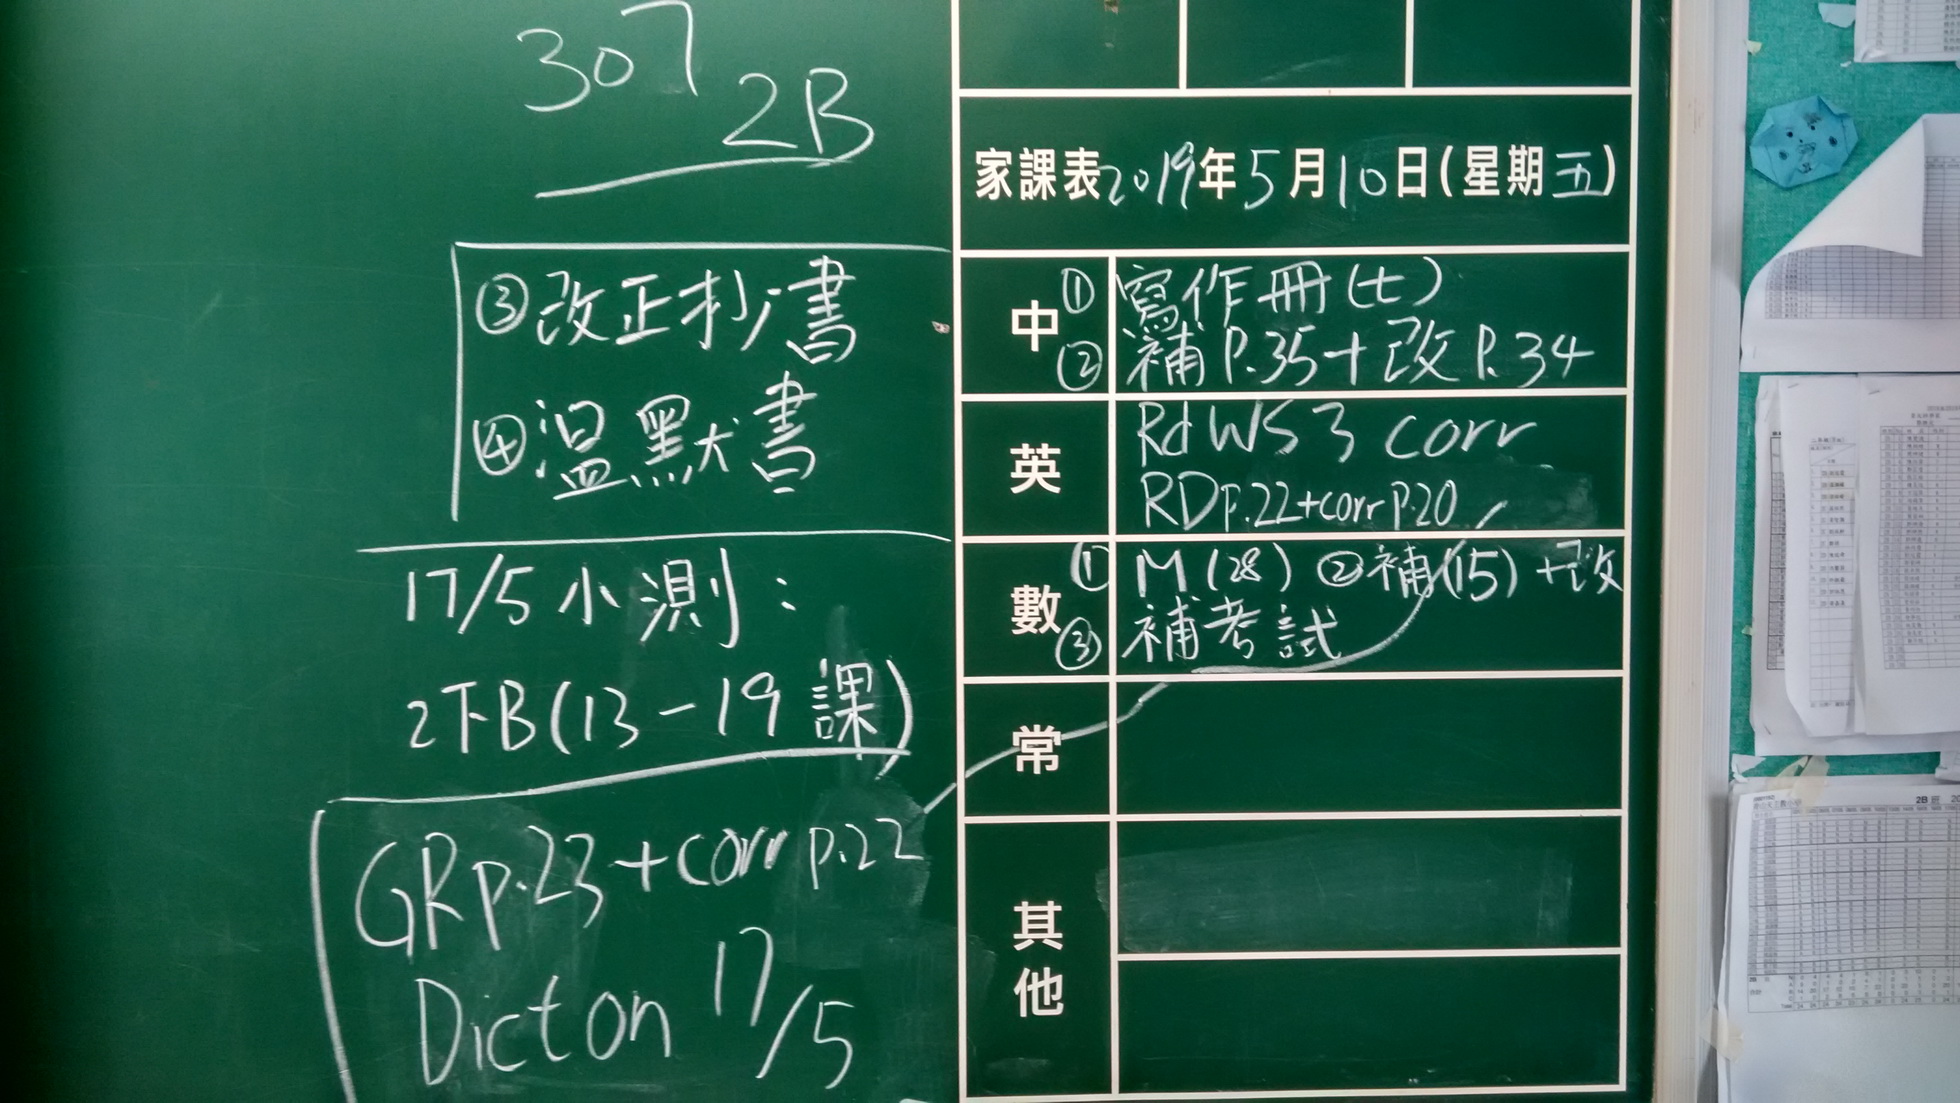 307
2B
③改正抄書
④溫默書
17/5小測：
2下B(13-19課)
GRp.23+corr p.22
Dict on 17/5
家課表2019年5月10日(星期五)
中
①寫作冊(七)
②補P.35+改P.34
英
Rd WS 3 corr
RDp.22+corr p.20
數
①M(28) ②補(15)+改
③補考試
常
其他
2B